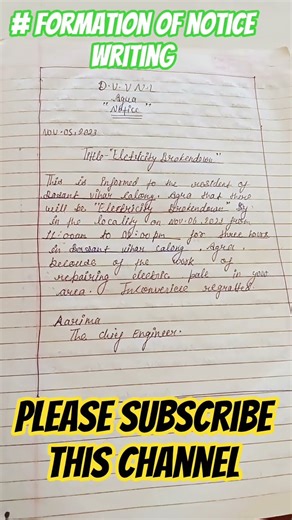 # FORMATION OF NOTICE
WRITING
D.V.V.N.L
Agra
"Notice"
Nov-05,2023
Title-"Elctricity Brokendown"
This is informed to the resident of
Basant vihar calony, Agra that there
will be "Electricity Brokendown"
in the locality on Nov.06,2023 from
12:00am to 03:00pm for three hours
in Basant vihar calony, Agra.
because of the work of
repairing electric pale in your
area. Inconvericee regratted
Aarima
The chief Engineer.
PLEASE SUBSCRIBE
THIS CHANNEL